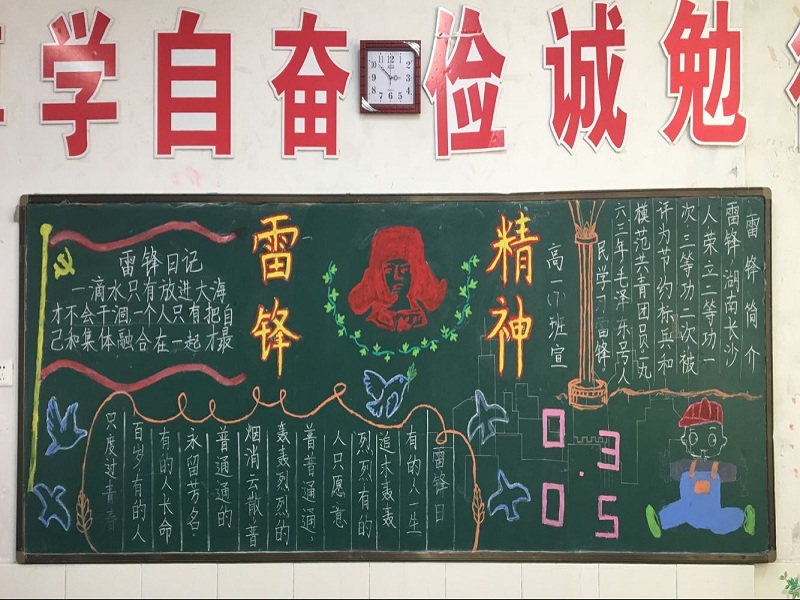 学自奋俭诚勉
雷锋精神
雷锋日记
一滴水只有放进大海
才不会干涸一个人只有把自
己和集体融合在一起才最
高一(7)班宣
雷锋简介
雷锋 湖南长沙
人荣立二等功一
次三等功二次被
评为节约标兵和
模范共青团员一九
六三年毛泽东号人
民学习雷锋
雷锋日
有的人一生
追求轰轰
烈烈有的
人只愿意
普普通通,
轰轰烈烈的
烟消云散,普
普通通的
永留芳名.
有的人长命
百岁有的人
只度过青春
03.
05